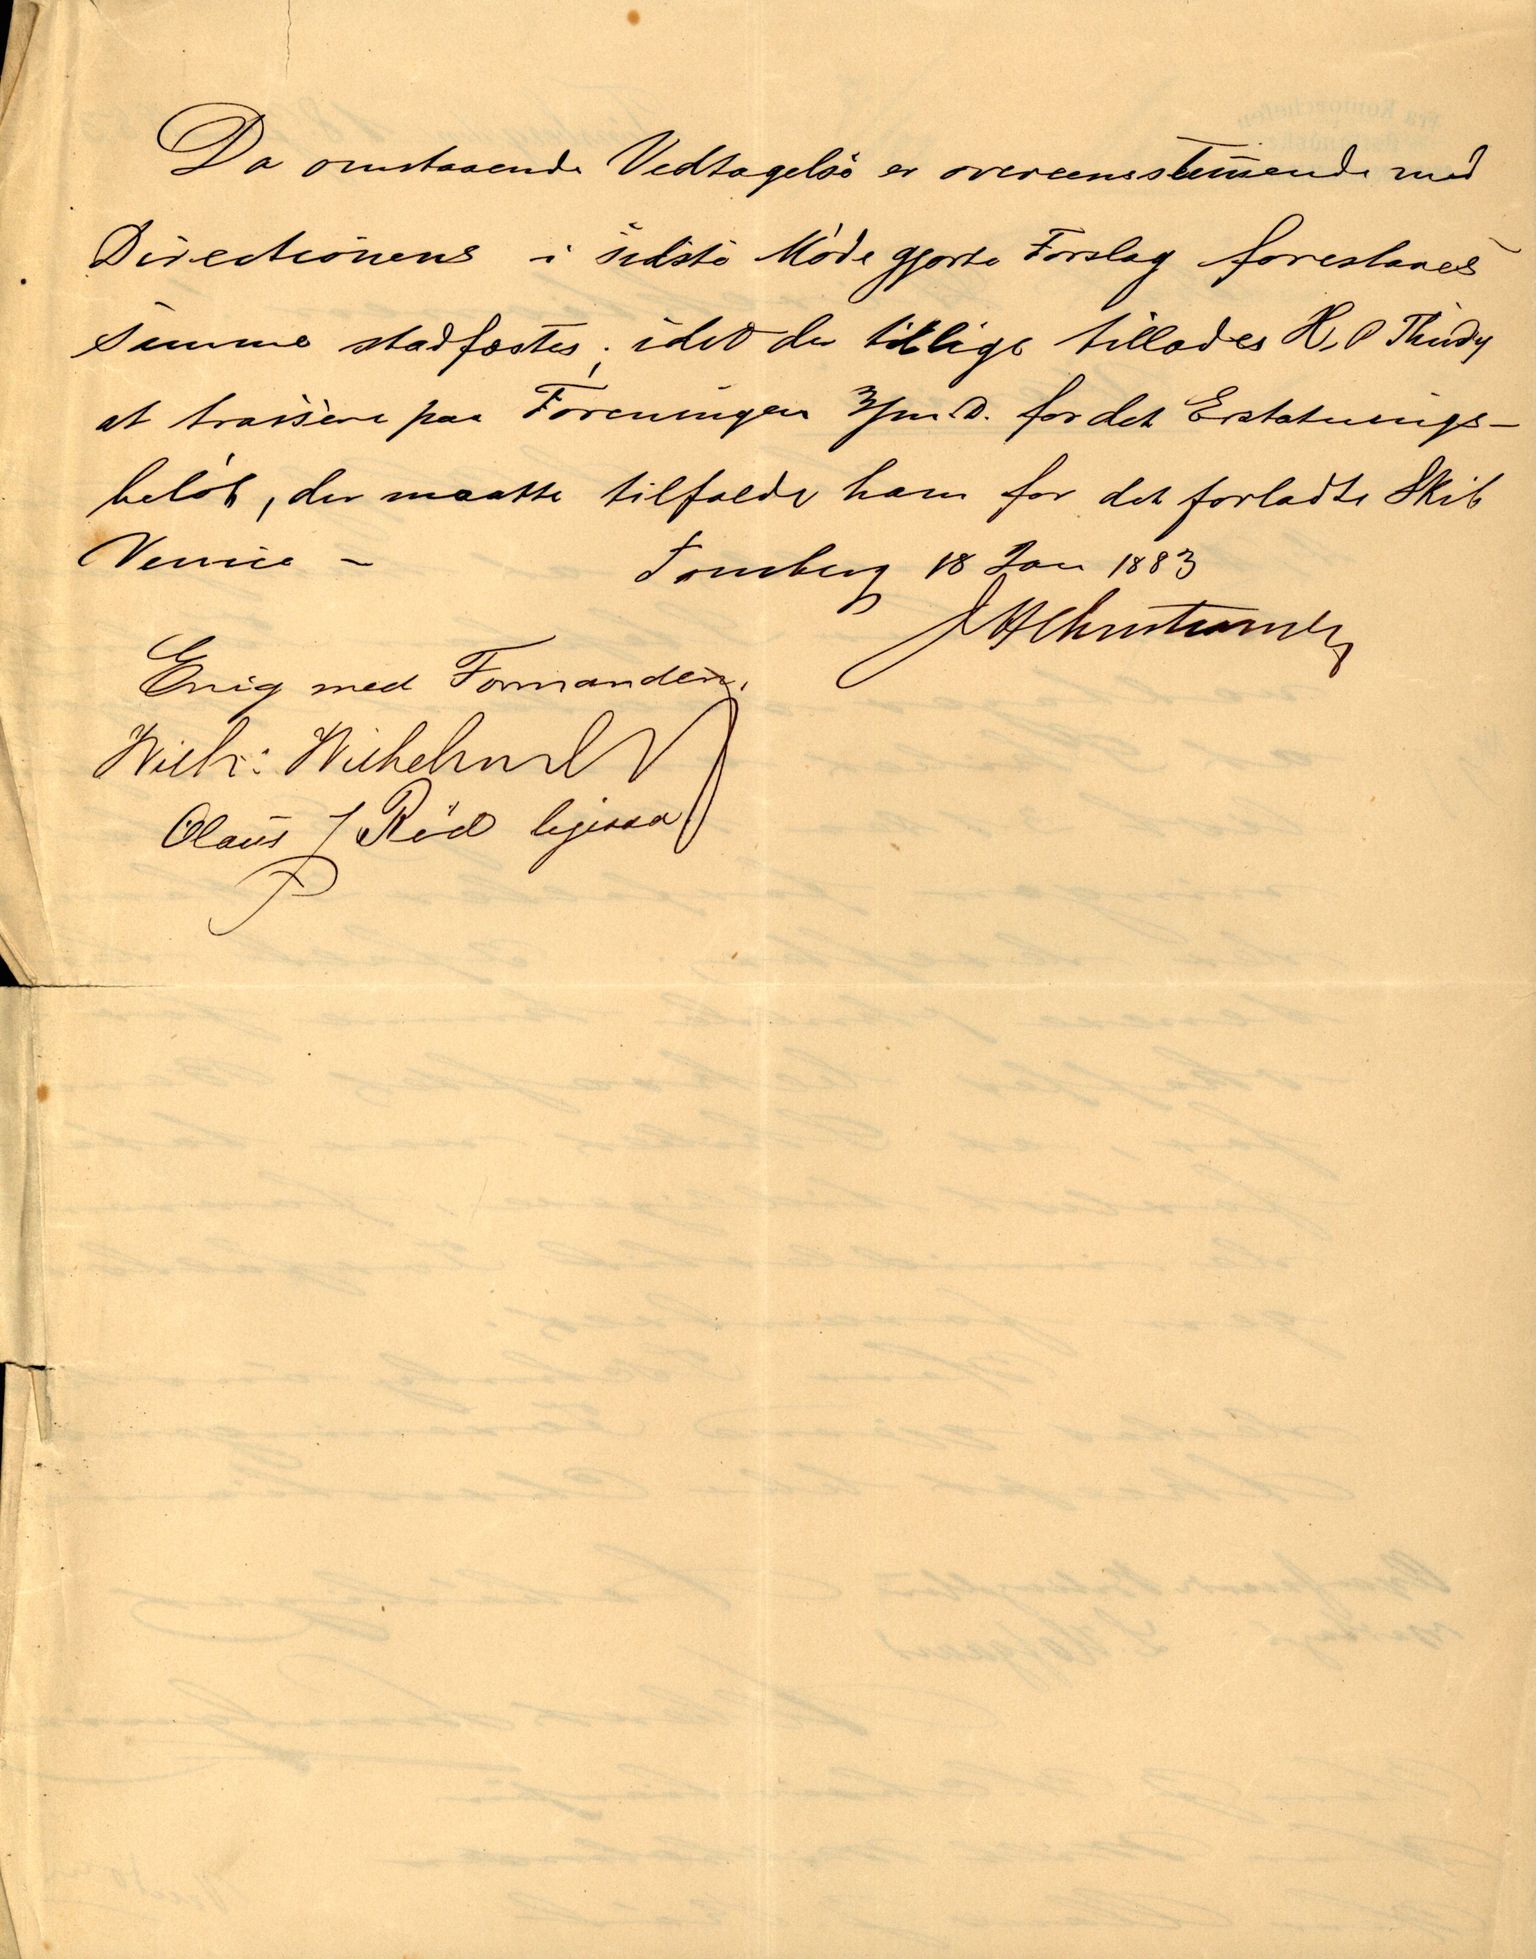 Da omstaaende Vedtagelse er overeensstemmende med
Directionens i sidste Møde gjorte Forslag forestaaes
samme stadfæstes; idet der tillige tillades H. P. Thidy
at trassere paa Foreningen 3/m D. for det Erstatnings-
beløb, der maatte tilfalde ham for det forladte Skib
Venice –
Tønsberg 18 Jan 1883
J H Christiansen
Enig med Formanden.
Wilh: Wilhelmsen
Olaus J Röd ligesaa